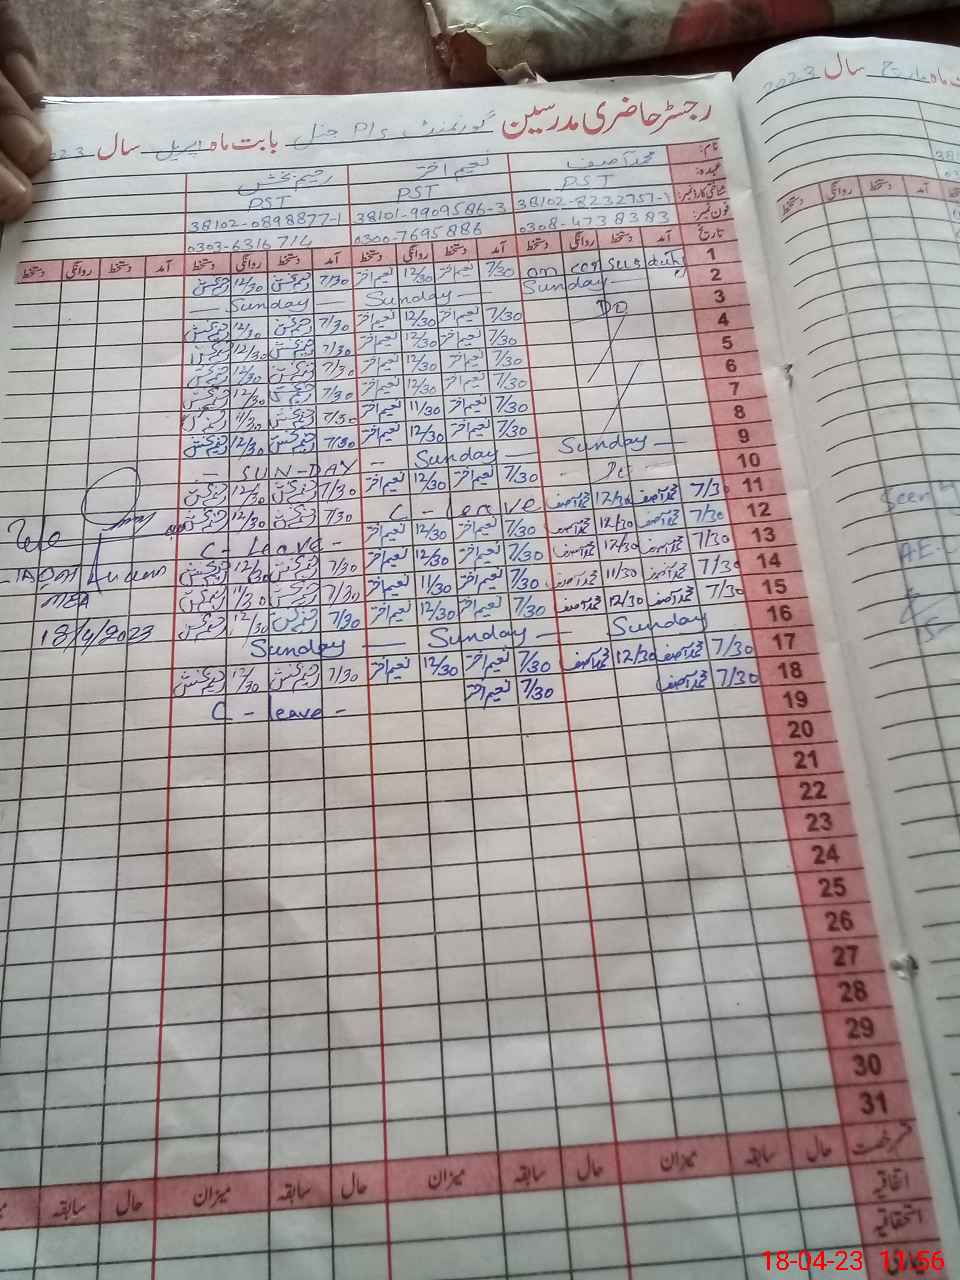 رجسٹر حاضری مدرسین گورنمنٹ P/S بابت ماہ اپریل سال
نام: محمد آصف نعیم اختر رحیم بخش
عہدہ: PST PST PST
شناختی کارڈ نمبر: 38102-8232757-1 38101-9909586-3 38102-0898877-1
فون نمبر: 0308-4738383 0300-7695886 0303-6316714
تاریخ آمد دستخط روانگی دستخط آمد دستخط روانگی دستخط آمد دستخط روانگی دستخط آمد دستخط روانگی دستخط
1 on census duty 7/30 نعیم اختر 12/30 نعیم اختر 7/30 رحیم بخش 12/30 رحیم بخش
2 Sunday — Sunday — Sunday —
3 Do 7/30 نعیم اختر 12/30 نعیم اختر 7/30 رحیم بخش 12/30 رحیم بخش
4 7/30 نعیم اختر 12/30 نعیم اختر 7/30 رحیم بخش 12/30 رحیم بخش
5 7/30 نعیم اختر 12/30 نعیم اختر 7/30 رحیم بخش 12/30 رحیم بخش
6 7/30 نعیم اختر 12/30 نعیم اختر 7/30 رحیم بخش 12/30 رحیم بخش
7 7/30 نعیم اختر 11/30 نعیم اختر 7/30 رحیم بخش 11/30 رحیم بخش
8 7/30 نعیم اختر 12/30 نعیم اختر 7/30 رحیم بخش 12/30 رحیم بخش
9 Sunday — Sunday — - SUN-DAY -
10 7/30 نعیم اختر 12/30 نعیم اختر 7/30 رحیم بخش 12/30 رحیم بخش
11 7/30 محمد آصف 12/30 محمد آصف C - leave 7/30 رحیم بخش 12/30 رحیم بخش
12 7/30 محمد آصف 12/30 محمد آصف 7/30 نعیم اختر 12/30 نعیم اختر C - Leave -
13 7/30 محمد آصف 12/30 محمد آصف 7/30 نعیم اختر 12/30 نعیم اختر 7/30 رحیم بخش 12/30 رحیم بخش
14 7/30 محمد آصف 11/30 محمد آصف 7/30 نعیم اختر 11/30 نعیم اختر 7/30 رحیم بخش 11/30 رحیم بخش
15 7/30 محمد آصف 12/30 محمد آصف 7/30 نعیم اختر 12/30 نعیم اختر 7/30 رحیم بخش 12/30 رحیم بخش
16 Sunday Sunday — Sunday —
17 7/30 محمد آصف 12/30 محمد آصف 7/30 نعیم اختر 12/30 نعیم اختر 7/30 رحیم بخش 12/30 رحیم بخش
18 7/30 محمد آصف 7/30 نعیم اختر C - leave -
19
20
21
22
23
24
25
26
27
28
29
30
31
حال سابقہ میزان حال سابقہ میزان حال سابقہ میزان حال سابقہ
اتفاقیہ
استحقاقیہ
MEA
18/4/2023
ماہ مارچ سال 2023
آمد دستخط روانگی دستخط
Seen
18-04-23 11:56